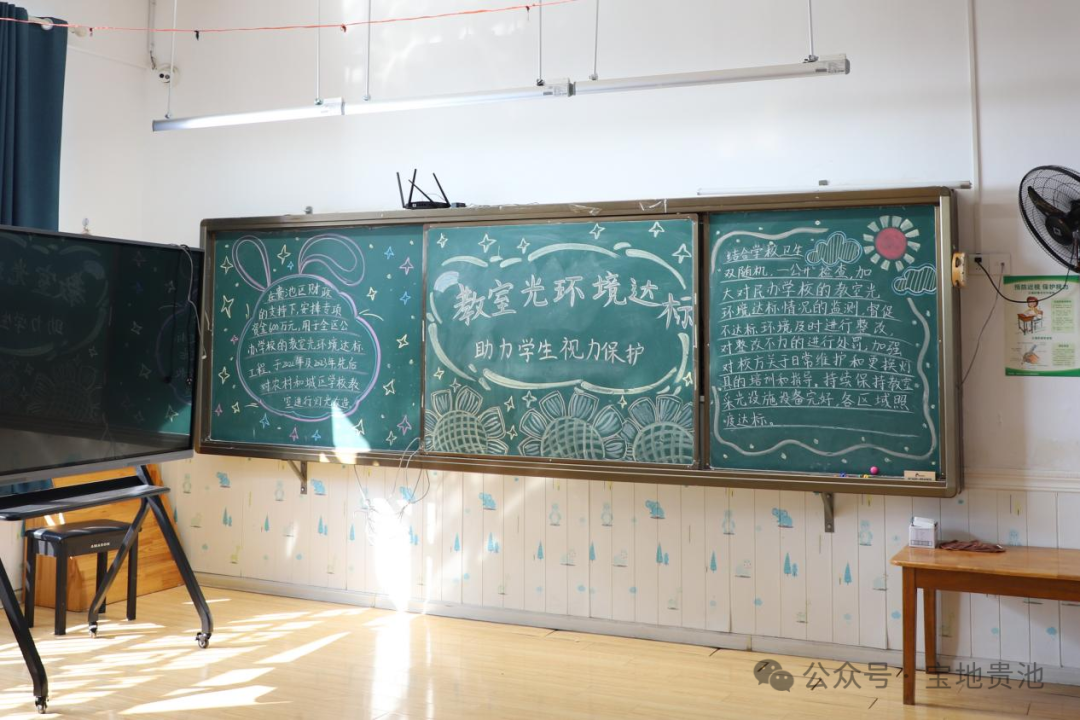 在贵池区财政
的支持下,安排专项
资金600万元,用于全区公
办学校的教室光环境达标
工程,于2022年及2023年先后
对农村和城区学校教
室进行灯光改造。
教室光环境达标
助力学生视力保护
结合学校卫生
双随机,一公开检查,加
大对民办学校的教室光
环境达标情况的监测,督促
不达标环境及时进行整改,
对整改不力的进行处罚,加强
对校方关于日常维护和更换灯
具的培训和指导,持续保持教室
采光设施设备完好,各区域照
度达标。
预防近视 保护视力
公众号·宝地贵池